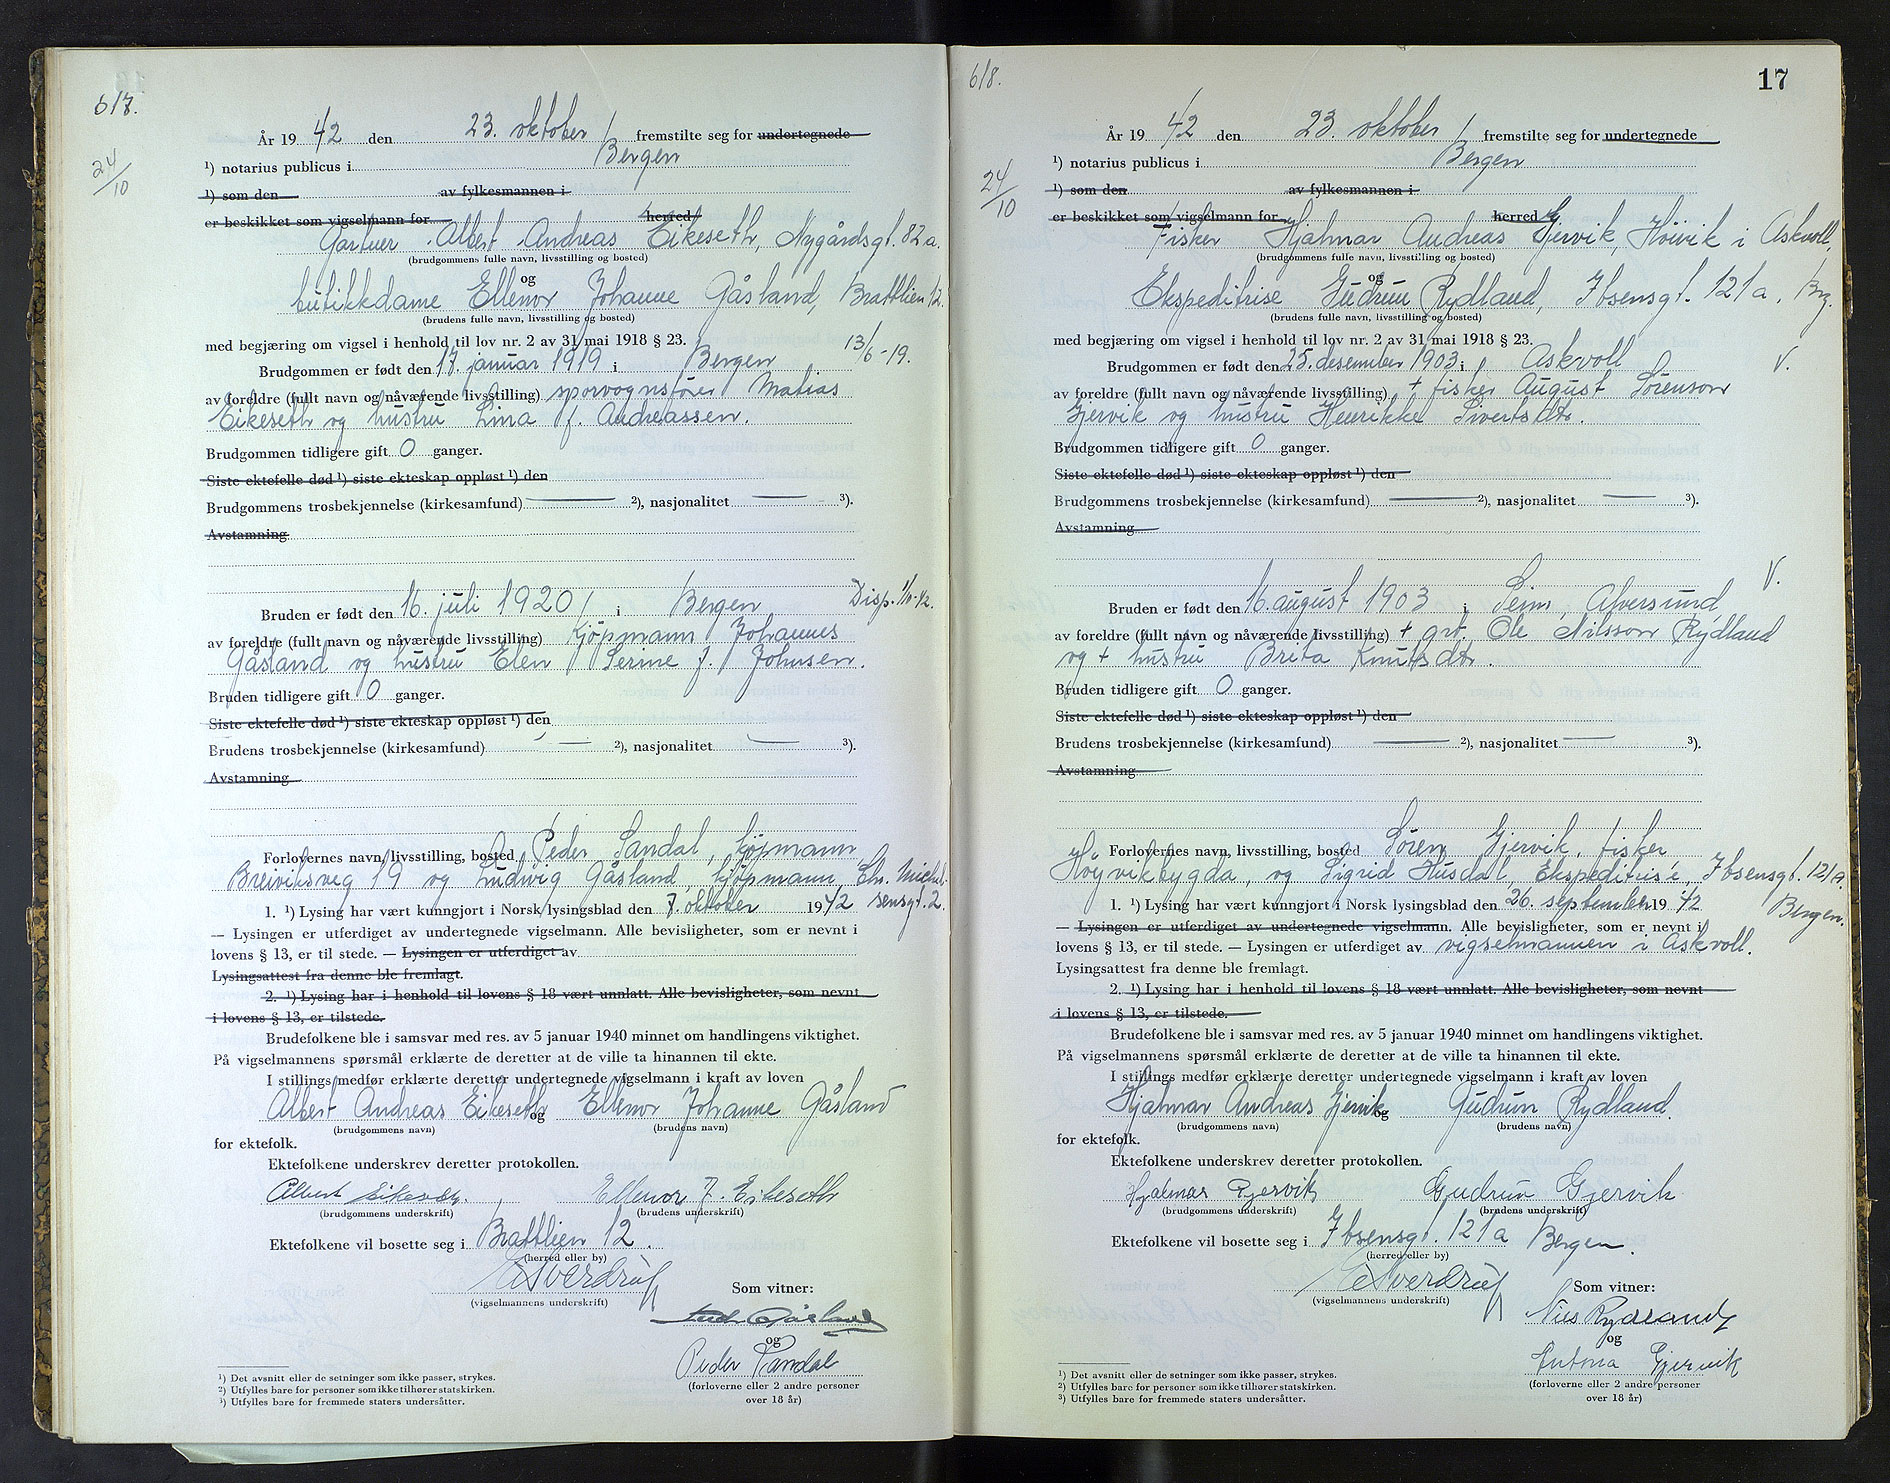 617.
24/10
År 19 42 den 23. oktober fremstilte seg for undertegnede
¹) notarius publicus i Bergen
¹) som den av fylkesmannen i
er beskikket som vigselmann for herred
Gartner Albert Andreas Eikeseth, Nygårdsgt. 82 a.
(brudgommens fulle navn, livsstilling og bosted)
og
butikkdame Ellenor Johanne Gåsland, Brattlien 12.
(brudens fulle navn, livsstilling og bosted)
med begjæring om vigsel i henhold til lov nr. 2 av 31 mai 1918 § 23. 13/6-19.
Brudgommen er født den 17. januar 1919 i Bergen
av foreldre (fullt navn og nåværende livsstilling) sporvognsfører Matias
Eikeseth og hustru Lina f. Andreassen.
Brudgommen tidligere gift 0 ganger.
Siste ektefelle død ¹) siste ekteskap oppløst ¹) den
Brudgommens trosbekjennelse (kirkesamfund) ²), nasjonalitet ³).
Avstamning
Disp. 1/10-42.
Bruden er født den 16. juli 1920 i Bergen
av foreldre (fullt navn og nåværende livsstilling) Kjöpmann Johannes
Gåsland og hustru Elen Serine f. Johnsen.
Bruden tidligere gift 0 ganger.
Siste ektefelle død ¹) siste ekteskap oppløst ¹) den
Brudens trosbekjennelse (kirkesamfund) ²), nasjonalitet ³).
Avstamning
Forlovernes navn, livsstilling, bosted Peder Sandal, kjöpmann
Breiviksveg 19 og Ludwig Gåsland, kjöpmann, Chr. Michel-
1. ¹) Lysing har vært kunngjort i Norsk lysingsblad den 7. oktober 1942 sensgt. 2.
— Lysingen er utferdiget av undertegnede vigselmann. Alle bevisligheter, som er nevnt i
lovens § 13, er til stede. — Lysingen er utferdiget av
Lysingsattest fra denne ble fremlagt.
2. ¹) Lysing har i henhold til lovens § 18 vært unnlatt. Alle bevisligheter, som nevnt
i lovens § 13, er tilstede.
Brudefolkene ble i samsvar med res. av 5 januar 1940 minnet om handlingens viktighet.
På vigselmannens spørsmål erklærte de deretter at de ville ta hinannen til ekte.
I stillings medfør erklærte deretter undertegnede vigselmann i kraft av loven
Albert Andreas Eikeseth og Ellenor Johanne Gåsland
(brudgommens navn) (brudens navn)
for ektefolk.
Ektefolkene underskrev deretter protokollen.
Albert Eikeseth. Ellenor J. Eikeseth
(brudgommens underskrift) (brudens underskrift)
Ektefolkene vil bosette seg i Brattlien 12.
(herred eller by)
Sverdrup
(vigselmannens underskrift)
Som vitner:
Ludv Gåsland
og
Peder Sandal
(forloverne eller 2 andre personer
over 18 år)
¹) Det avsnitt eller de setninger som ikke passer, strykes.
²) Utfylles bare for personer som ikke tilhører statskirken.
³) Utfylles bare for fremmede staters undersåtter.
618.
17
24/10
År 19 42 den 23. oktober fremstilte seg for undertegnede
¹) notarius publicus i Bergen
¹) som den av fylkesmannen i
er beskikket som vigselmann for herred
Fisker Hjalmar Andreas Gjervik, Höivik i Askvoll,
(brudgommens fulle navn, livsstilling og bosted)
og
Ekspeditrise Gudrun Rydland, Ibsensgt. 121a, Brg.
(brudens fulle navn, livsstilling og bosted)
med begjæring om vigsel i henhold til lov nr. 2 av 31 mai 1918 § 23.
Brudgommen er født den 25. desember 1903 i Askvoll V.
av foreldre (fullt navn og nåværende livsstilling) + fisker August Sörenson
Gjervik og hustru Henrikke Sivertsdtr.
Brudgommen tidligere gift 0 ganger.
Siste ektefelle død ¹) siste ekteskap oppløst ¹) den
Brudgommens trosbekjennelse (kirkesamfund) ²), nasjonalitet ³).
Avstamning
V.
Bruden er født den 16. august 1903 i Seim, Alversund
av foreldre (fullt navn og nåværende livsstilling) + grb. Ole Nilsson Rydland
og + hustru Brita Knutsdtr.
Bruden tidligere gift 0 ganger.
Siste ektefelle død ¹) siste ekteskap oppløst ¹) den
Brudens trosbekjennelse (kirkesamfund) ²), nasjonalitet ³).
Avstamning
Forlovernes navn, livsstilling, bosted Sören Gjervik, fisker
Höyvikbygda, og Sigrid Husdal, Ekspeditrise, Ibsensgt. 121a.
1. ¹) Lysing har vært kunngjort i Norsk lysingsblad den 26. september 1942 Bergen.
— Lysingen er utferdiget av undertegnede vigselmann. Alle bevisligheter, som er nevnt i
lovens § 13, er til stede. — Lysingen er utferdiget av vigselmannen i Askvoll.
Lysingsattest fra denne ble fremlagt.
2. ¹) Lysing har i henhold til lovens § 18 vært unnlatt. Alle bevisligheter, som nevnt
i lovens § 13, er tilstede.
Brudefolkene ble i samsvar med res. av 5 januar 1940 minnet om handlingens viktighet.
På vigselmannens spørsmål erklærte de deretter at de ville ta hinannen til ekte.
I stillings medfør erklærte deretter undertegnede vigselmann i kraft av loven
Hjalmar Andreas Gjervik og Gudrun Rydland.
(brudgommens navn) (brudens navn)
for ektefolk.
Ektefolkene underskrev deretter protokollen.
Hjalmar Gjervik Gudrun Gjervik
(brudgommens underskrift) (brudens underskrift)
Ektefolkene vil bosette seg i Ibsensgt. 121a Bergen.
(herred eller by)
Sverdrup
(vigselmannens underskrift)
Som vitner:
Nils Rydland
og
Antona Gjervik
(forloverne eller 2 andre personer
over 18 år)
¹) Det avsnitt eller de setninger som ikke passer, strykes.
²) Utfylles bare for personer som ikke tilhører statskirken.
³) Utfylles bare for fremmede staters undersåtter.